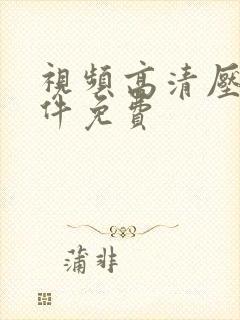 視頻高清壓
件免費
蒲非